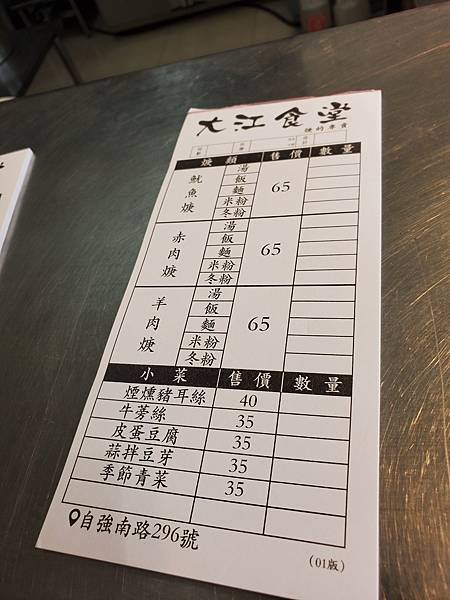 大江食堂
焿的專賣
焿類 售價 數量
魷魚焿 65
湯
飯
麵
米粉
冬粉
赤肉焿 65
湯
飯
麵
米粉
冬粉
羊肉焿 65
湯
飯
麵
米粉
冬粉
小菜 售價 數量
煙燻豬耳絲 40
牛蒡絲 35
皮蛋豆腐 35
蒜拌豆芽 35
季節青菜 35
自強南路296號
(01版)